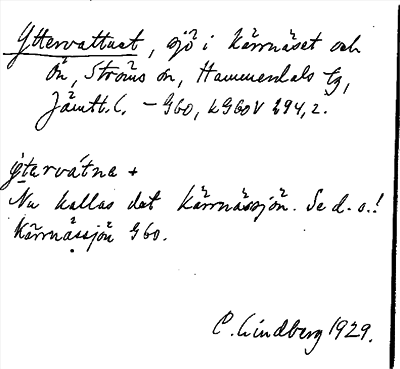 Yttervattnet, sjö i Kärrnäset och
Ön, Ströms sn, Hammerdals tg,
Jämtl. l. – G60, kG60V 294, 2.
ỳtarvátne +
Nu kallas det Kärrnässjön. Se d. o.!
Kärrnässjön G60.
C. Lindberg 1929.